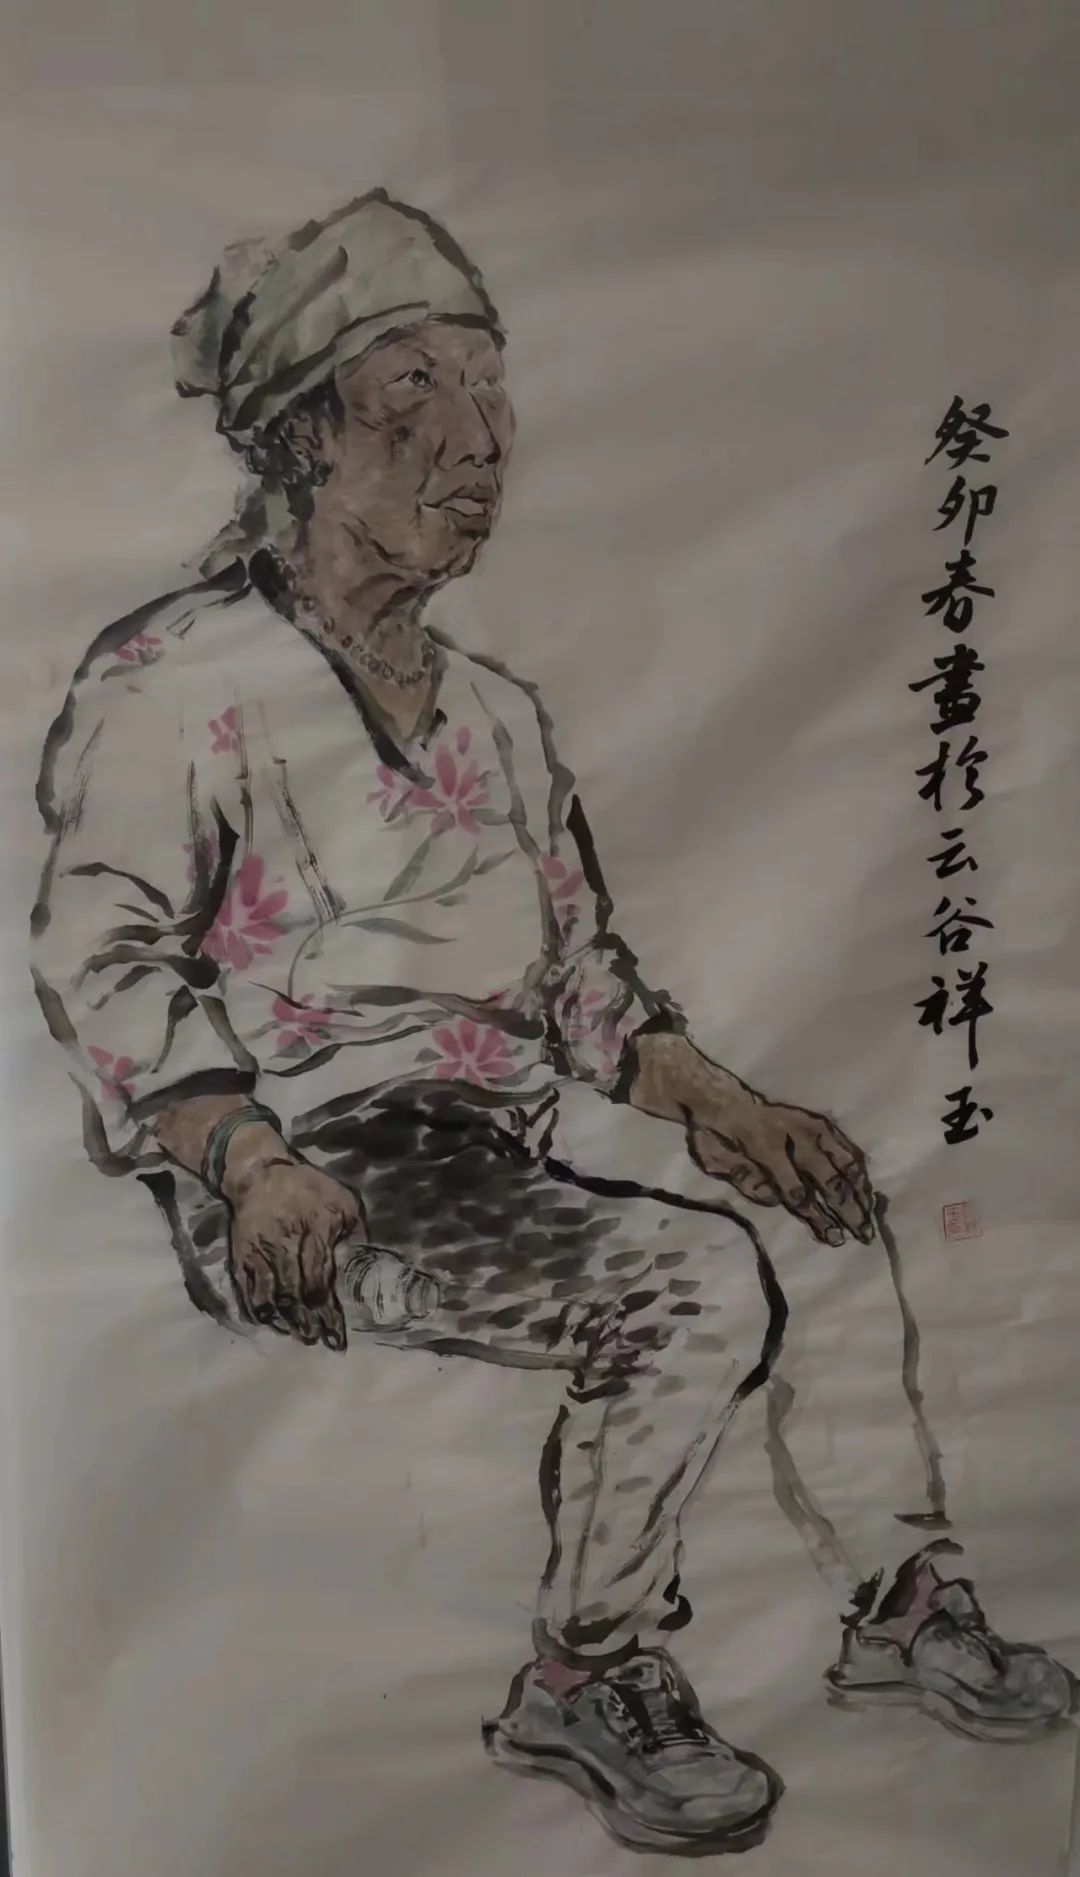 癸卯春畫於云谷祥玉